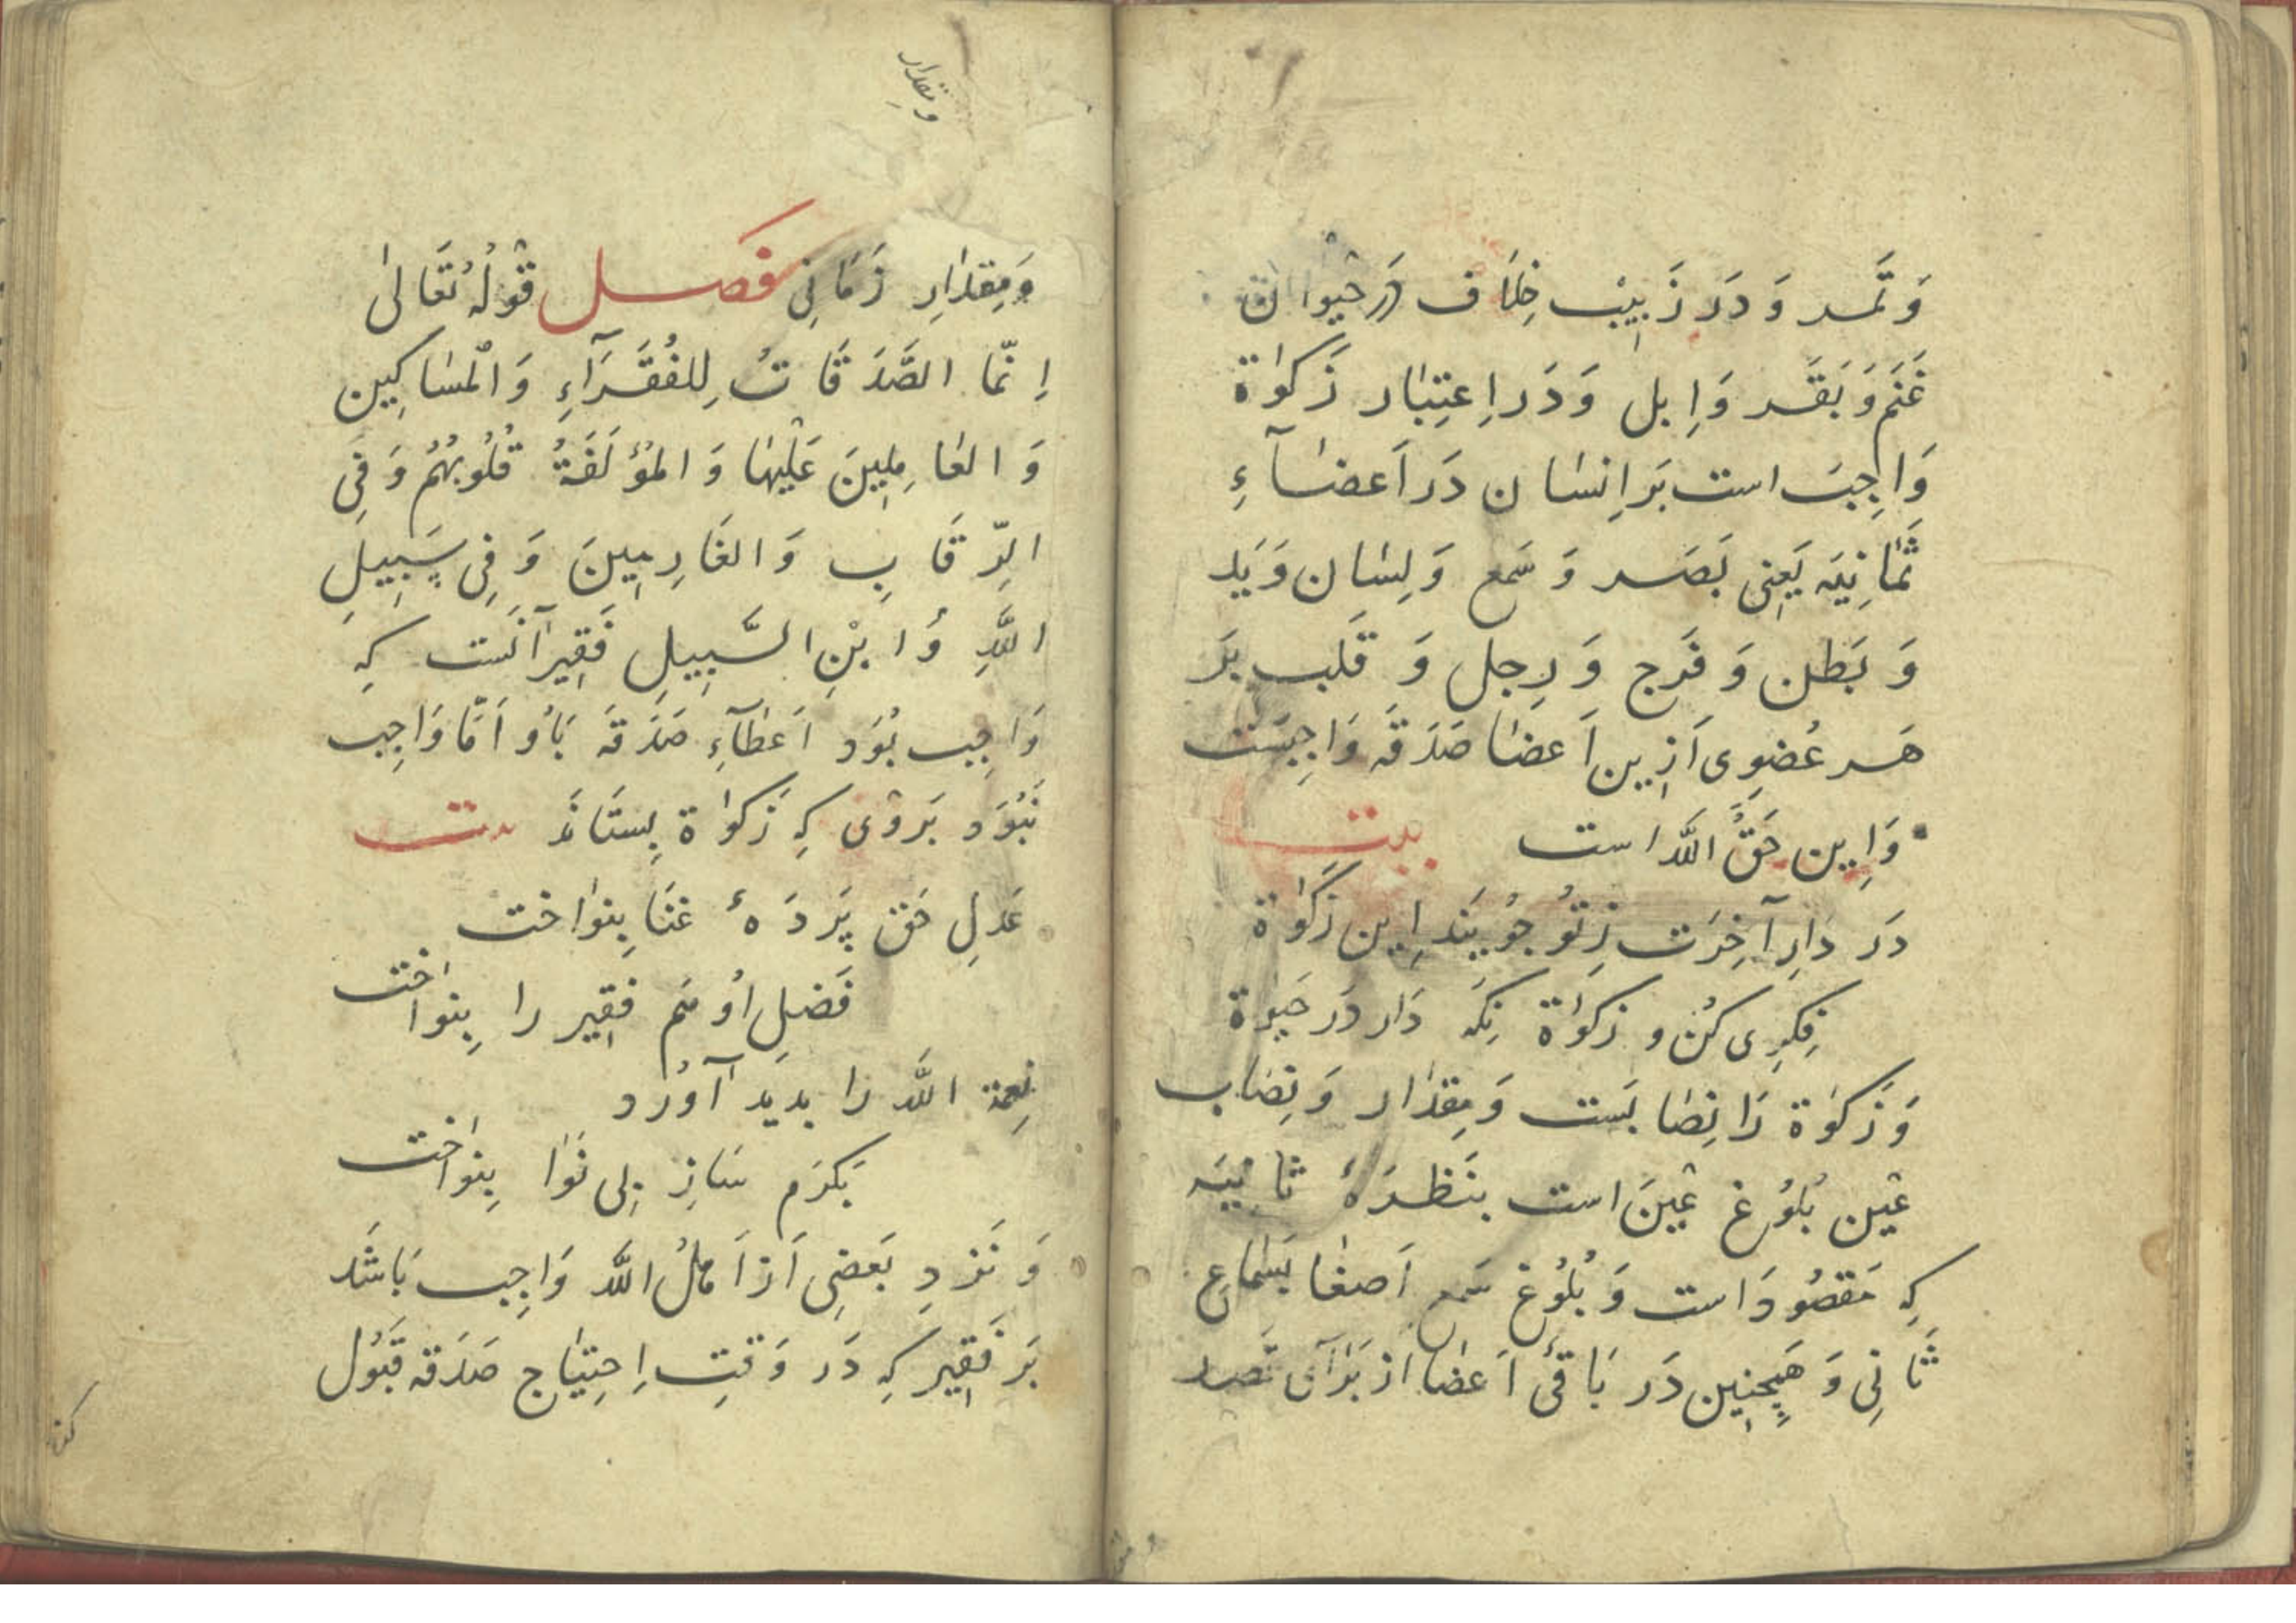 وَتَمر وَ دَر زَبِیب خِلَاف دَر حَیوان
غَنَم وَ بَقَر وَ اِبل وَ دَر اِعتِبار زَکوٰة
وَاجِب است بَر اِنسَان دَر اَعضَآءِ
ثَمَانِیَه یَعنِی بَصَر وَ سَمع وَ لِسَان وَ یَد
وَ بَطن وَ فَرج وَ رِجل وَ قَلب بَر
هَر عُضوِی اَزِین اَعضَا صَدَقَه وَاجِبَست
وَ اِین حَقُّ اللّٰه است بیت
دَر دَارِ آخِرَت زِ تُو جُویَند اِین زَکَوٰة
فِکرِی کُن و زکوٰة نِگَه دَار دَر حَیٰوة
وَ زَکوٰة رَا نِصَابَست وَ مِقدَار وَ نِصَاب
عَین بُلُوغ عَین است بنَظرَۀ ثانِیَه
کِه مَقصُود است وَ بُلُوغ سَمع اَصغَا بسَمَاعِ
ثَانِی وَ هَمچِنِین دَر بَاقیٔ اَعضَا از برَآی
و مقدار
وَمِقدَارِ زَمَانِی فَصل قَوْلُهُ تَعَالیٰ
اِنَّمَا الصَّدَقَاتُ لِلفُقَرَآءِ وَالْمَسَاکِین
وَ العَامِلِینَ عَلَیْهَا وَ المُؤَلَّفَةُ قُلُوبُهُمُ وَ فِی
الرِّقَابِ وَ الغَارِمِینَ وَ فِی سَبِیلِ
اللّٰهِ وَ ابْنِ السَّبِیلِ فَقِیر آنَست کِه
وَاجِب بُوَد اَعطَآءِ صَدَقَه بَاُو اَمَّا وَاجِب
نَبُوَد بَر وَی کِه زَکوٰة بِستَاند بیت
عَدلِ حَق پَردَۀ غَنَا بِنوَاخت
فَضلِ اُو هَم فقِیر را بِنوَاخت
نِعمة اللّٰه را بدید آوُرد
بَکَرَم سَازِ بِی نَوَا بِنوَاخت
وَ نَزدِ بَعضِی اَز اَهلُ اللّٰه وَاجِب بَاشَد
بَر فَقِیر کِه دَر وَقتِ اِحتِیَاج صَدَقه قَبُول
کند